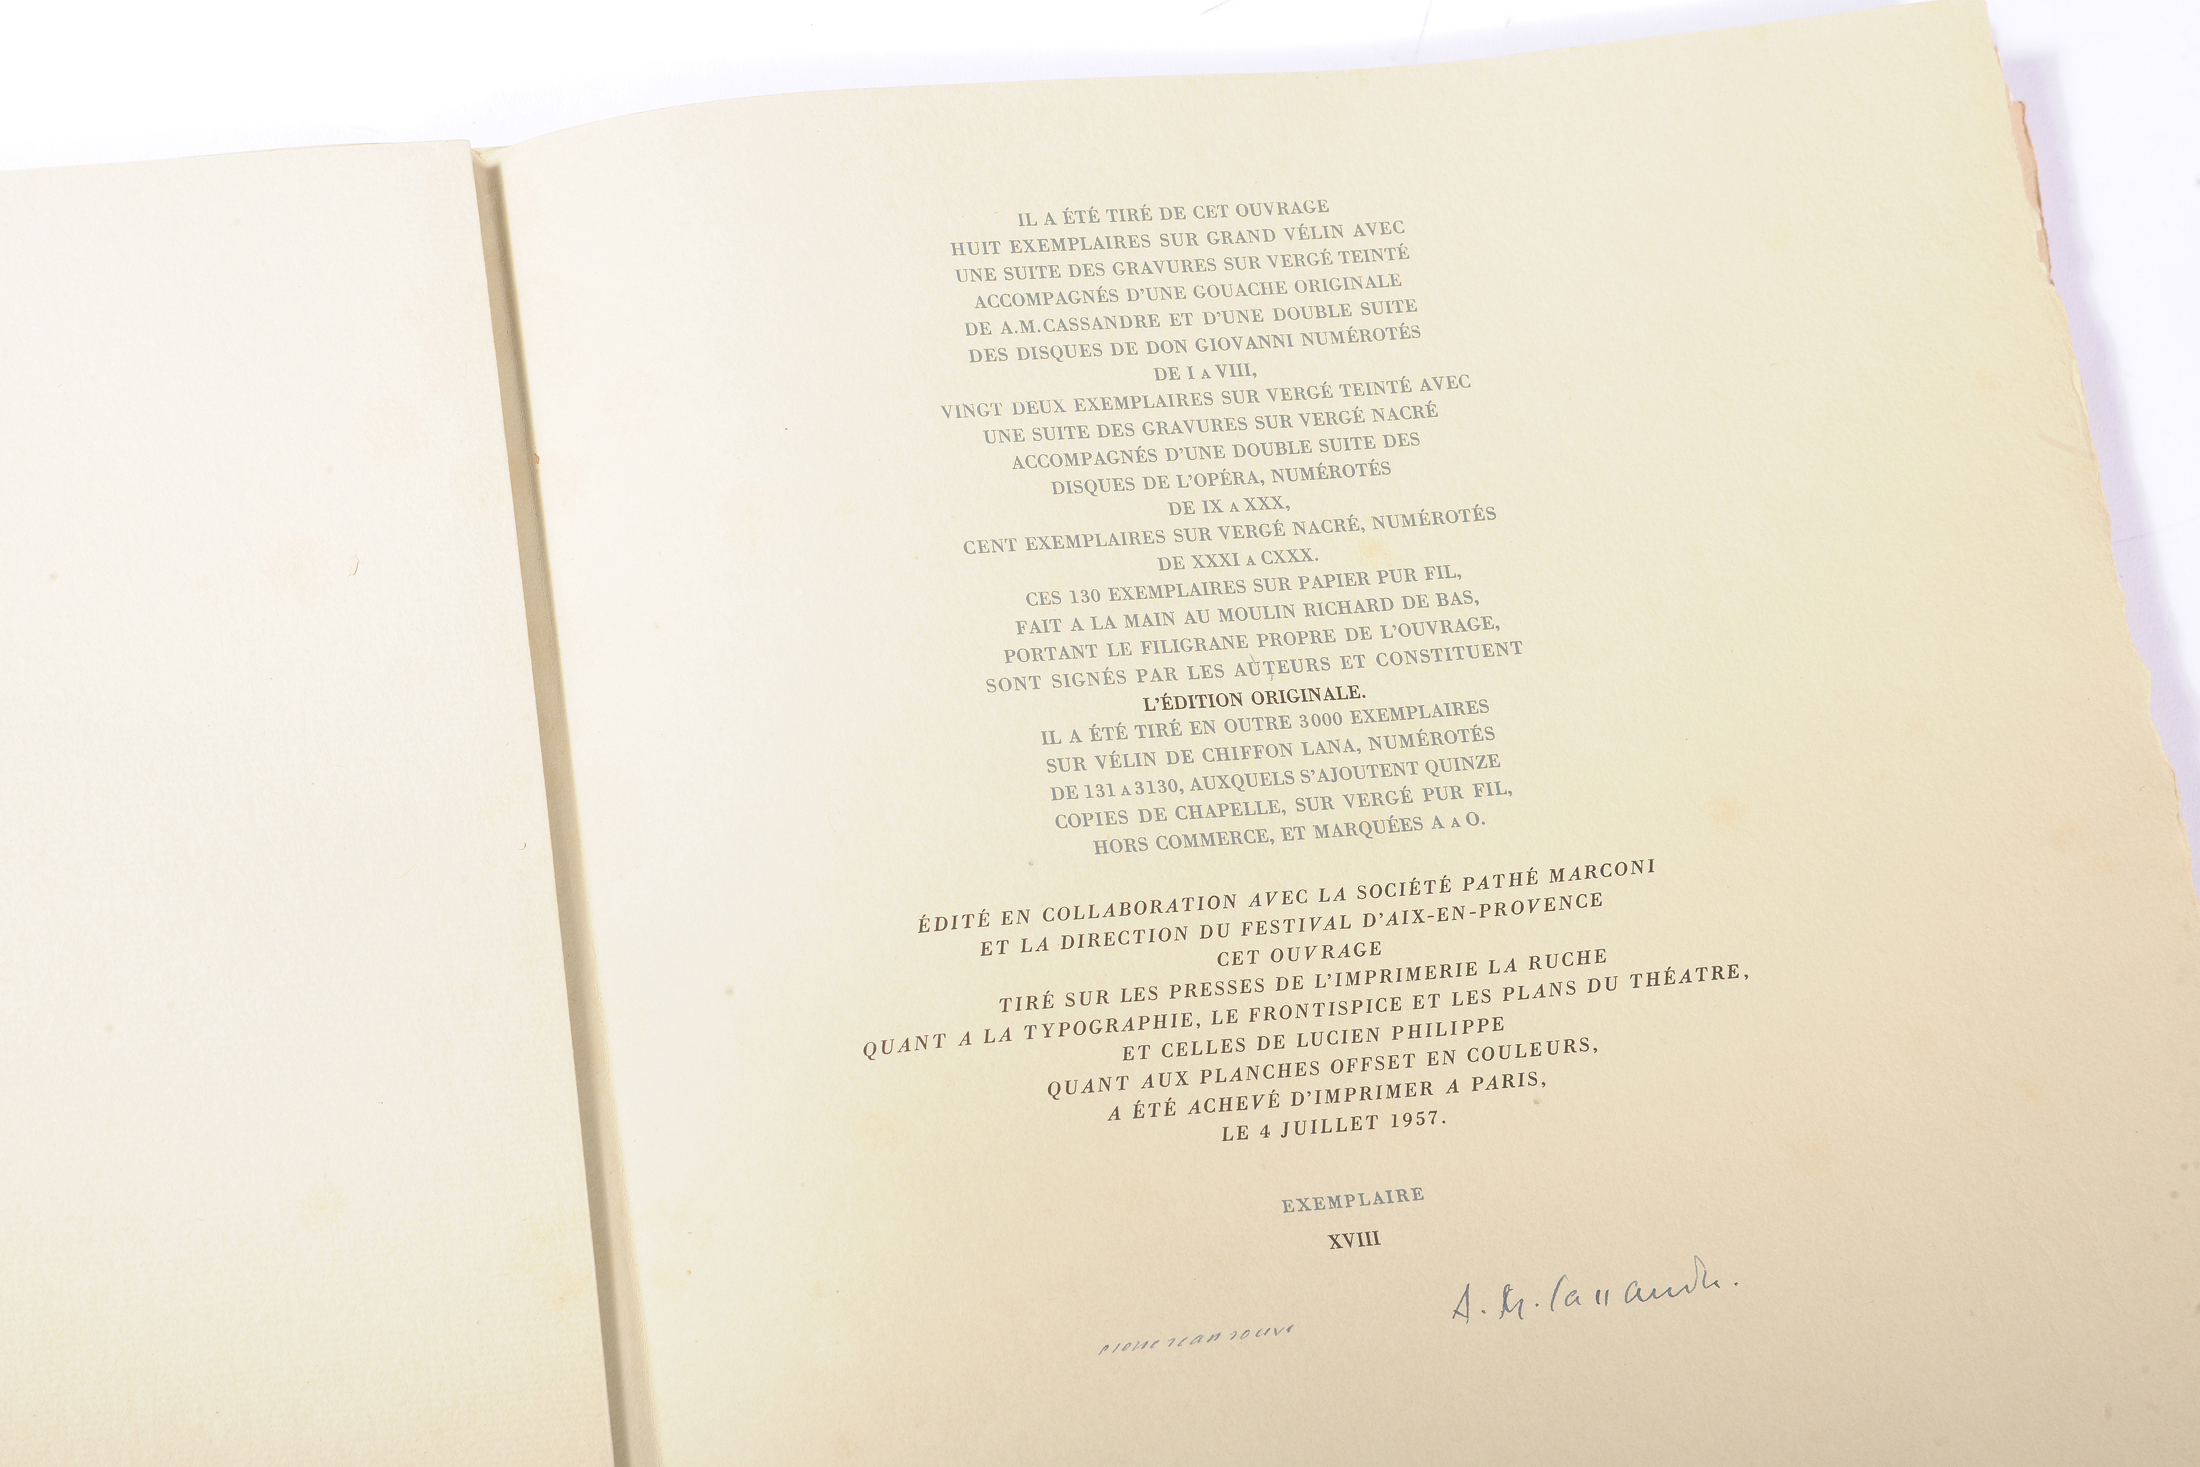 IL A ÉTÉ TIRÉ DE CET OUVRAGE
HUIT EXEMPLAIRES SUR GRAND VÉLIN AVEC
UNE SUITE DES GRAVURES SUR VERGÉ TEINTÉ
ACCOMPAGNÉS D'UNE GOUACHE ORIGINALE
DE A.M.CASSANDRE ET D'UNE DOUBLE SUITE
DES DISQUES DE DON GIOVANNI NUMÉROTÉS
DE I A VIII,
VINGT DEUX EXEMPLAIRES SUR VERGÉ TEINTÉ AVEC
UNE SUITE DES GRAVURES SUR VERGÉ NACRÉ
ACCOMPAGNÉS D'UNE DOUBLE SUITE DES
DISQUES DE L'OPÉRA, NUMÉROTÉS
DE IX A XXX,
CENT EXEMPLAIRES SUR VERGÉ NACRÉ, NUMÉROTÉS
DE XXXI A CXXX.
CES 130 EXEMPLAIRES SUR PAPIER PUR FIL,
FAIT A LA MAIN AU MOULIN RICHARD DE BAS,
PORTANT LE FILIGRANE PROPRE DE L'OUVRAGE,
SONT SIGNÉS PAR LES AUTEURS ET CONSTITUENT
L'ÉDITION ORIGINALE.
IL A ÉTÉ TIRÉ EN OUTRE 3000 EXEMPLAIRES
SUR VÉLIN DE CHIFFON LANA, NUMÉROTÉS
DE 131 A 3130, AUXQUELS S'AJOUTENT QUINZE
COPIES DE CHAPELLE, SUR VERGÉ PUR FIL,
HORS COMMERCE, ET MARQUÉES A A O.
ÉDITÉ EN COLLABORATION AVEC LA SOCIÉTÉ PATHÉ MARCONI
ET LA DIRECTION DU FESTIVAL D'AIX-EN-PROVENCE
CET OUVRAGE
TIRÉ SUR LES PRESSES DE L'IMPRIMERIE LA RUCHE
QUANT A LA TYPOGRAPHIE, LE FRONTISPICE ET LES PLANS DU THÉATRE,
ET CELLES DE LUCIEN PHILIPPE
QUANT AUX PLANCHES OFFSET EN COULEURS,
A ÉTÉ ACHEVÉ D'IMPRIMER A PARIS,
LE 4 JUILLET 1957.
EXEMPLAIRE
XVIII
A. M. Cassandre.
pierre jean jouve